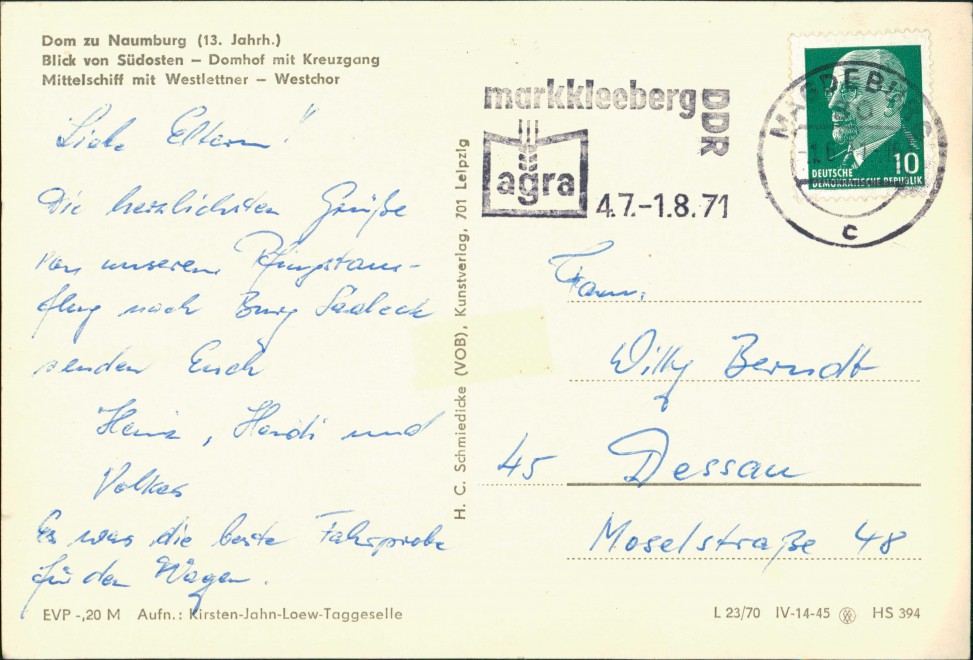 Dom zu Naumburg (13. Jahrh.)
Blick von Südosten – Domhof mit Kreuzgang
Mittelschiff mit Westlettner – Westchor
Liebe Eltern!
Die herzlichsten Grüße
von unserem Pfingstaus-
flug nach Burg Saaleck
senden Euch
Heinz, Heidi und
Volker
Es war die beste Fahrprobe
für den Wagen.
EVP -,20 M Aufn.: Kirsten-Jahn-Loew-Taggeselle
H. C. Schmiedicke (VOB), Kunstverlag, 701 Leipzig
markkleeberg
DDR
agra
4.7.-1.8.71
MAGDEBURG
c
10
DEUTSCHE
DEMOKRATISCHE REPUBLIK
Fam.
Willy Berndt
45 Dessau
Moselstraße 48
L 23/70 IV-14-45 HS 394